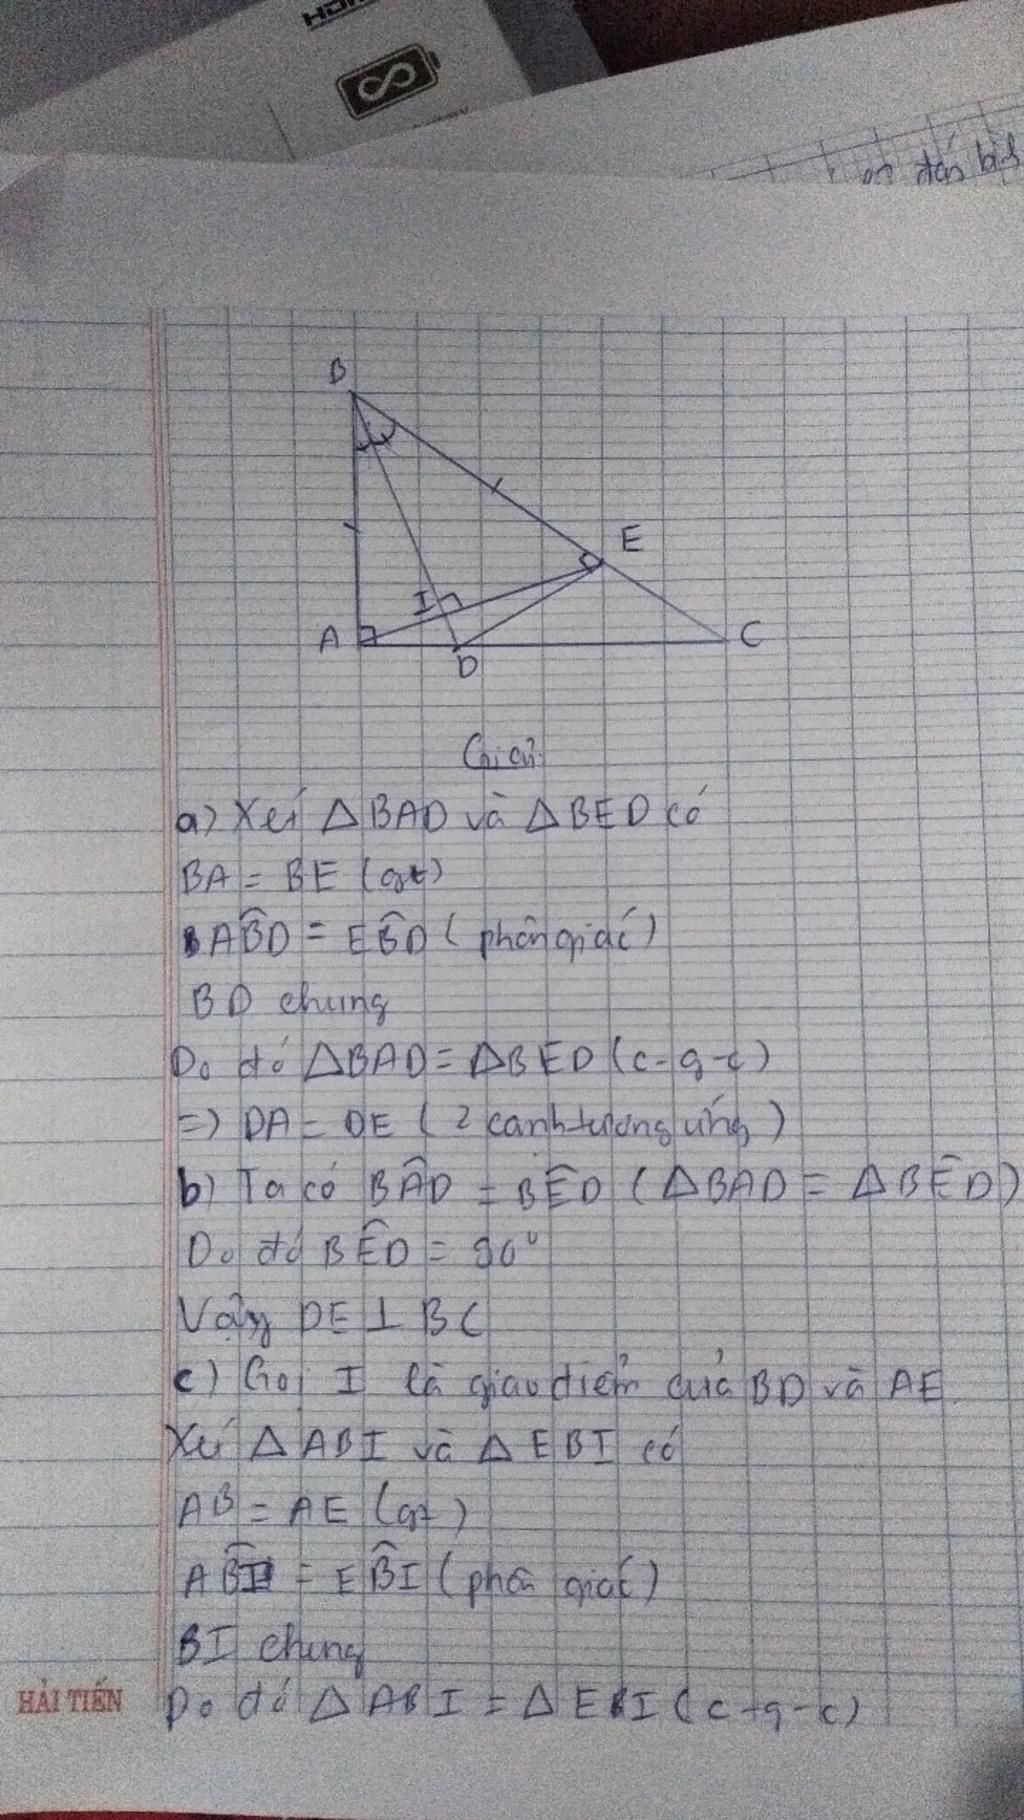 đán
B
E
I
A
C
D
Giải
a) Xét △BAD và △BED có
BA = BE (gt)
AB̂D = EB̂D (phân giác)
BD chung
Do đó △BAD = △BED (c-g-c)
=> DA = DE (2 cạnh tương ứng)
b) Ta có BÂD = BÊD (△BAD = △BÊD)
Do đó BÊD = 90°
Vậy DE ⊥ BC
c) Gọi I là giao điểm của BD và AE
Xét △ABI và △EBI có
AB = AE (gt)
AB̂I = EB̂I (phân giác)
BI chung
Do đó △ABI = △EBI (c-g-c)
HẢI TIẾN